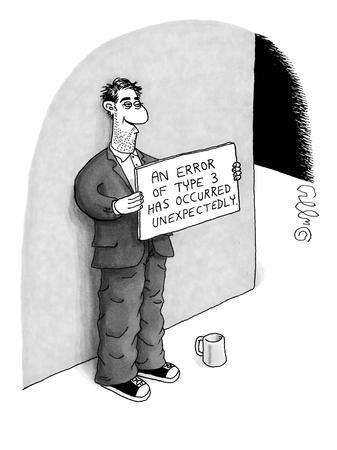 AN ERROR
OF TYPE 3
HAS OCCURRED
UNEXPECTEDLY.